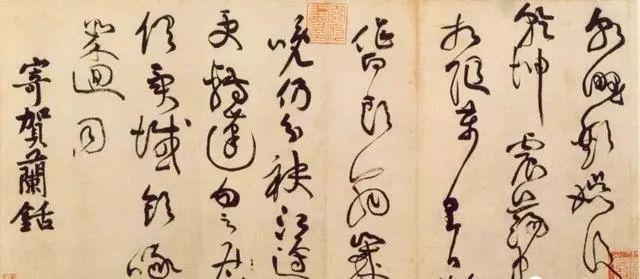 朝野歡娛後
乾坤震蕩中
相隨萬里日
作白頭翁歲
晚仍分袂江邊
更轉蓬勿言
俱異域飲啄
幾回同
寄賀蘭銛